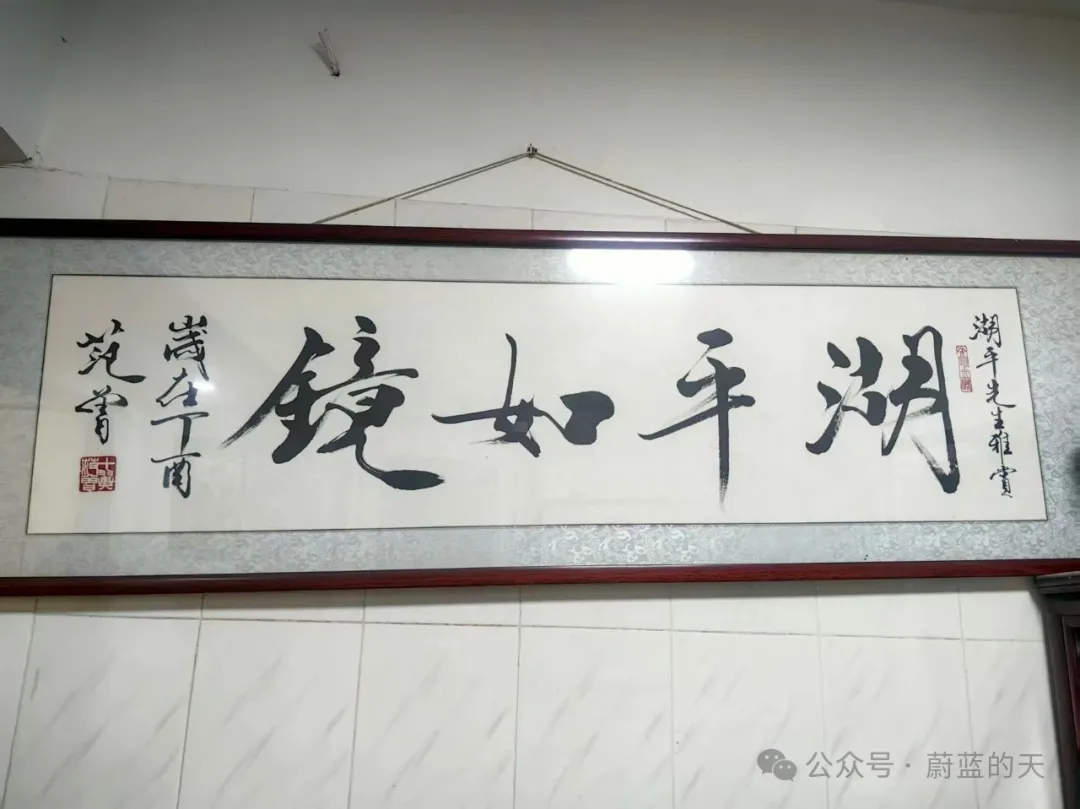 湖平先生雅賞
湖平如鏡
歲在丁酉
范曾
公众号 · 蔚蓝的天